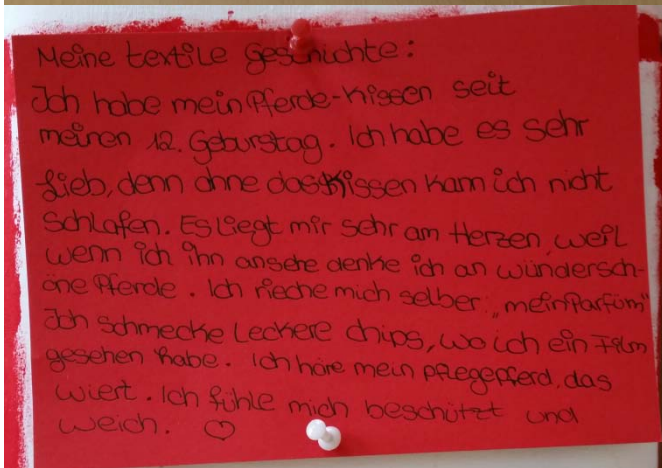 Meine textile Geschichte:
Ich habe mein Pferde-Kissen seit
meinen 12. Geburstag. Ich habe es sehr
Lieb, denn ohne das Kissen kann ich nicht
schlafen. Es liegt mir sehr am Herzen, weil
wenn ich ihn ansehe denke ich an wündersch-
öne Pferde. Ich rieche mich selber „mein Parfüm"
Ich schmecke leckere chips, wo ich ein Film
gesehen habe. Ich höre mein pflegepferd, das
wiert. Ich fühle mich beschützt und
weich. ♡